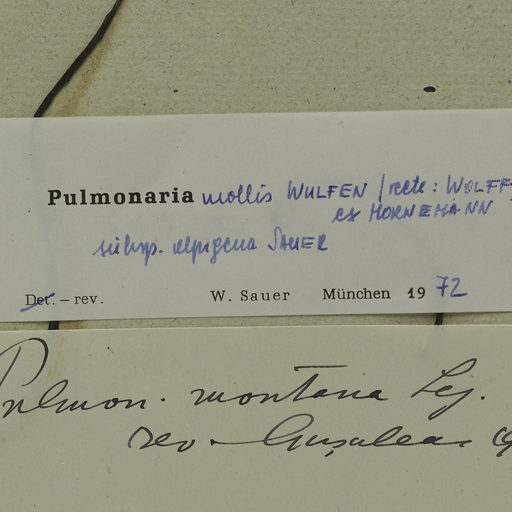 Pulmonaria mollis WULFEN / recte: WOLFF
ex HORNEMANN
subsp. alpigena SAUER
Det. – rev. W. Sauer München 19 72
Pulmon. montana Lej.
rev. Gușuleac